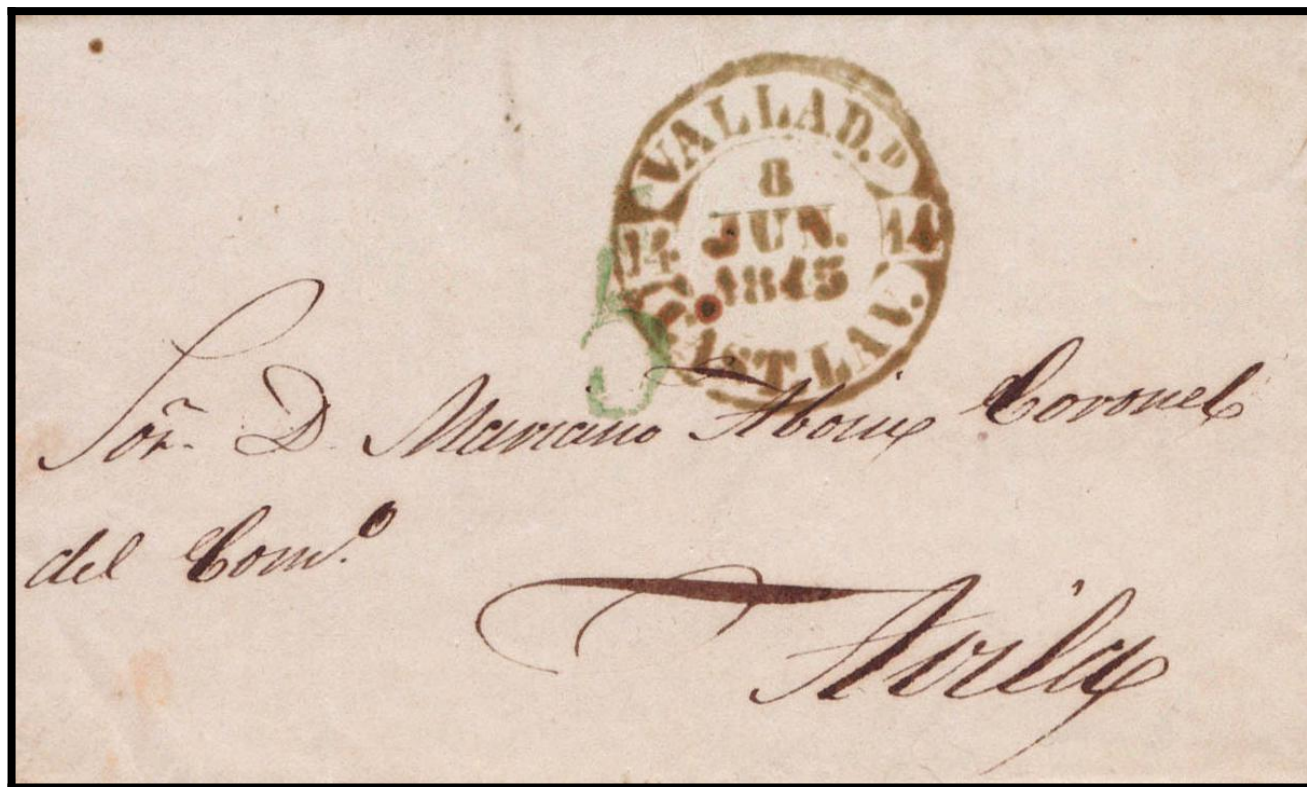 VALLAD.D
8
JUN.
1845
14 14
CAST LA V.
5
Sor. D. Mariano Coronel
del Com.o
Avila